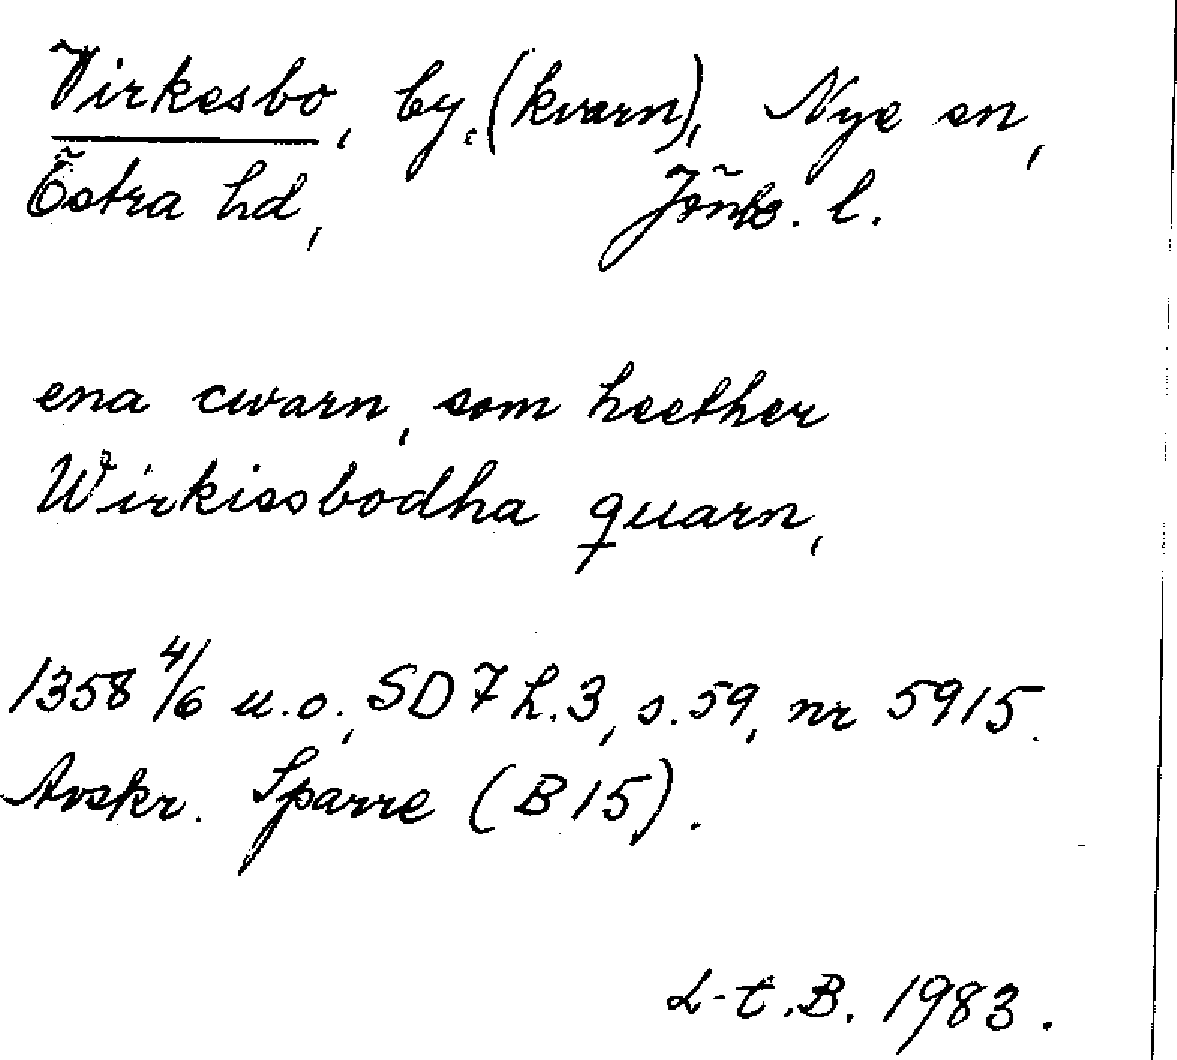 Virkesbo, by. (kvarn), Nye sn,
Östra hd, Jönk. l.
ena cwarn, som heether
Wirkissbodha quarn,
1358 4/6 u.o., SD 7 h.3, s.59, nr 5915.
Avskr. Sparre (B 15).
L-t.B. 1983.